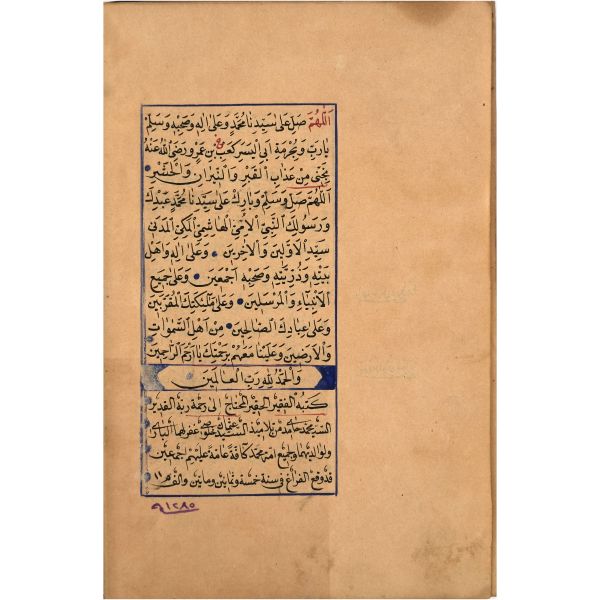 اَللّٰهُمَّ صَلِّ عَلٰى سَيِّدِنَا مُحَمَّدٍ وَعَلٰى اٰلِهٖ وَصَحْبِهٖ وَسَلِّمْ
يَارَبِّ وَبِحُرْمَةِ اَبِى الْيَسَرِ كَعْبِ بْنِ عَمْرٍو رَضِىَ اللّٰهُ عَنْهُ
نَجِّنِى مِنْ عَذَابِ الْقَبْرِ وَالنِّيْرَانِ وَالْحَشْرِ
اَللّٰهُمَّ صَلِّ وَسَلِّمْ وَبَارِكْ عَلٰى سَيِّدِنَا مُحَمَّدٍ عَبْدِكَ
وَرَسُولِكَ النَّبِىِّ الْاُمِّىِّ الْهَاشِمِىِّ الْمَكِّىِّ الْمَدَنِى
سَيِّدِ الْاَوَّلِينَ وَالْاٰخِرِينَ وَعَلٰى اٰلِهٖ وَاَهْلِ
بَيْتِهٖ وَذُرِّيَّتِهٖ وَصَحْبِهٖ اَجْمَعِينَ وَعَلٰى جَمِيعِ
الْاَنْبِيَاءِ وَالْمُرْسَلِينَ وَعَلٰى مَلٰئِكَتِكَ الْمُقَرَّبِينَ
وَعَلٰى عِبَادِكَ الصَّالِحِينَ مِنْ اَهْلِ السَّمٰوَاتِ
وَالْاَرَضِينَ وَعَلَيْنَا مَعَهُمْ بِرَحْمَتِكَ يَا اَرْحَمَ الرَّاحِمِينَ
وَالْحَمْدُ لِلّٰهِ رَبِّ الْعَالَمِينَ
كتبه الفقير الحقير المحتاج الى رحمة ربه القدير
السيد محمد حامد من تلاميذ السيد عثمان غفر لهما البارى
ولوالديهما وجميع امة محمد كافة عامة عليهم اجمعين
قد وقع الفراغ فى سنة خمسة وثمانين ومأتين والف م ١١
١٢٨٥